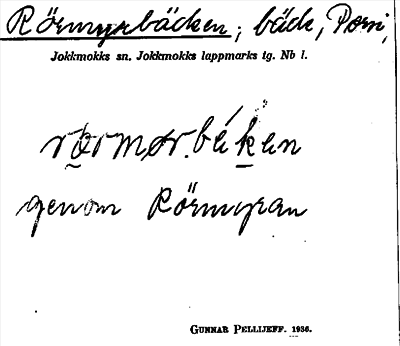 Rörmyrbäcken, bäck, Porsi,
Jokkmokks sn. Jokkmokks lappmarks tg. Nb l.
genom Rörmyran
GUNNAR PELLIJEFF. 1936.